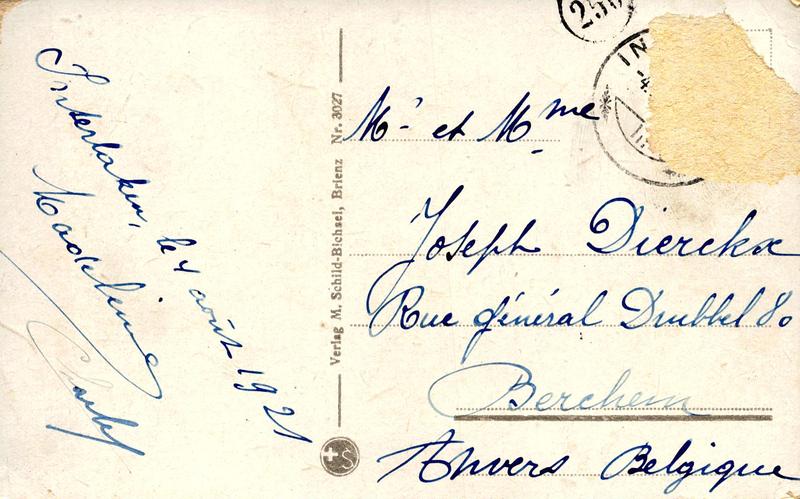 Interlaken, le 4 août 1921
Madeleine
Charles
Verlag M. Schild-Bichsel, Brienz Nr. 3027
Mr et Mme
Joseph Dierckx
Rue général Drubbel 80
Berchem
Anvers Belgique
25
IN